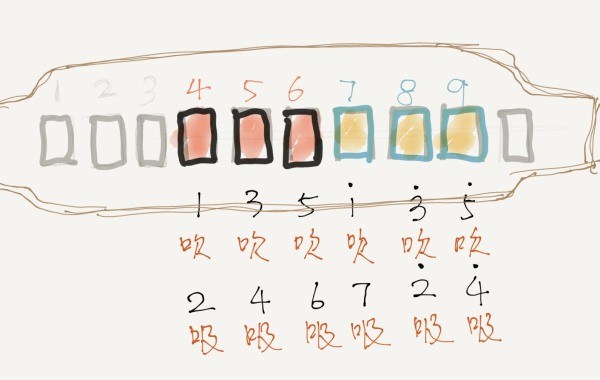 1 2 3 4 5 6 7 8 9
1 3 5 i 3̇ 5̇
吹 吹 吹 吹 吹 吹
2 4 6 7 2̇ 4̇
吸 吸 吸 吸 吸 吸